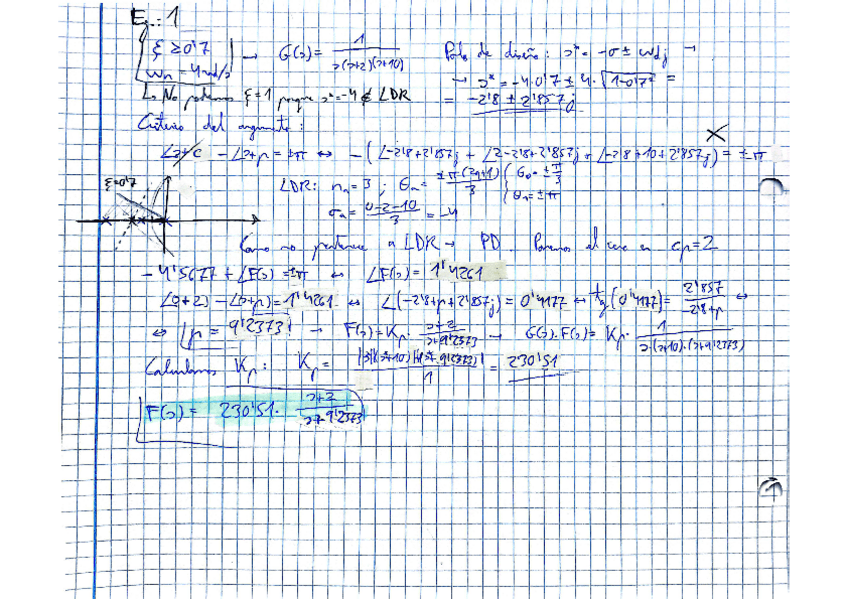 Ej. 1
ξ ≥ 0'7
ωn = 4 rad/s
→ G(s) = 1 / s(s+2)(s+10)
Polo de diseño: s* = -σ ± ωd j →
→ s* = -4·0'7 ± 4·√(1-0'7²) =
= -2'8 ± 2'857j
↳ No podemos ξ=1 porque s*=-4 ∉ LDR
Criterio del argumento:
∠s+c - ∠s+p = ±π ↔ -(∠-2'8+2'857j + ∠2-2'8+2'857j + ∠-2'8+10+2'857j) = ±π
ξ=0'7
LDR: na = 3 ; θa = ±π(2q+1)/3 { θ0 = ±π/3
θ1 = ±π
σa = 0-2-10/3 = -4
Como no pertenece a LDR → PD. Ponemos el cero en c=2
-4'5677 + ∠F(s) = ±π ↔ ∠F(s) = 1'4261
∠(s+2) - ∠(s+p) = 1'4261 ↔ ∠(-2'8+p+2'857j) = 0'4177 ↔ tg(0'4177) = 2'857 / -2'8+p ↔
↔ p = 9'2373 → F(s) = Kp · s+2 / s+9'2373 → G(s)·F(s) = Kp · 1 / s(s+10)·(s+9'2373)
Calculamos Kp: Kp = |s*||s*+10||s*+9'2373| / 1 = 230'51
F(s) = 230'51 · s+2 / s+9'2373